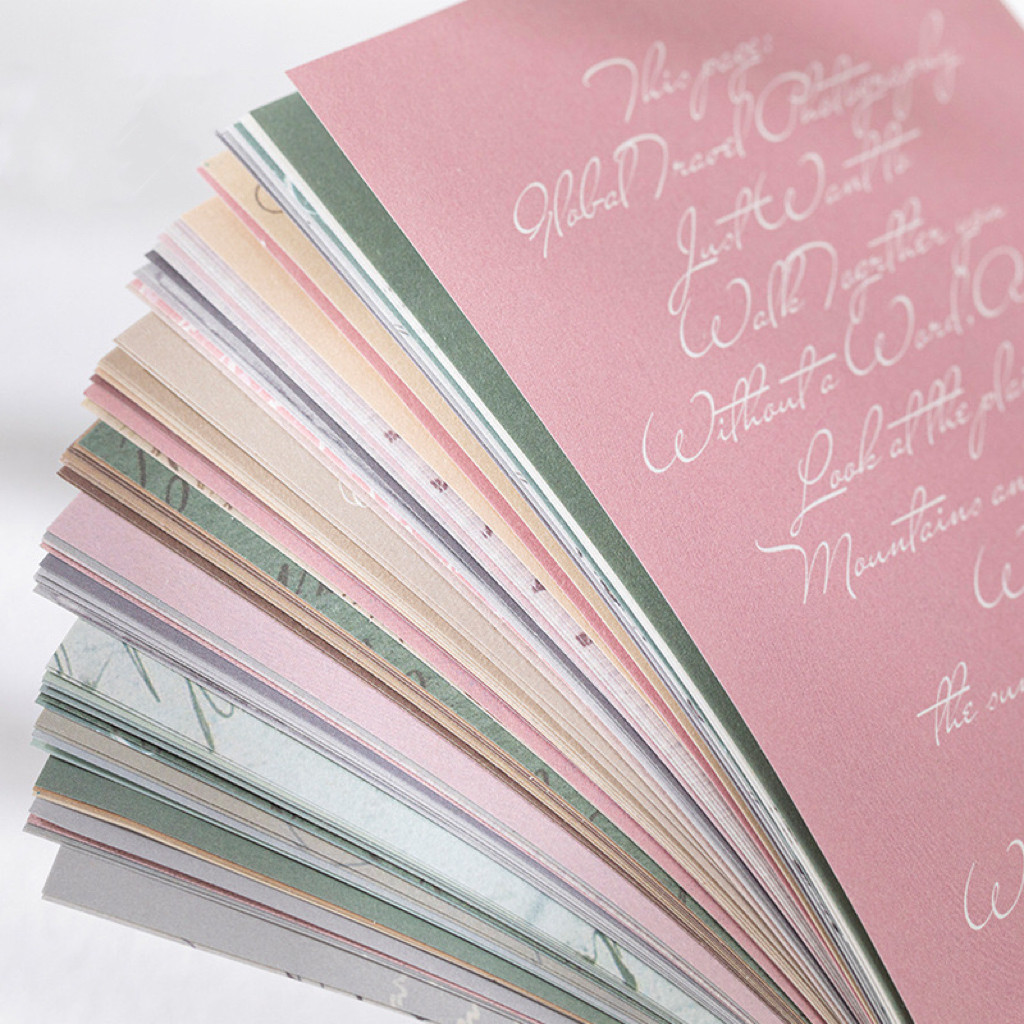 This page:
Global Travel Photography
Just Want to
Walk Together you
Without a Word,
Look at the
Mountains an
the sun